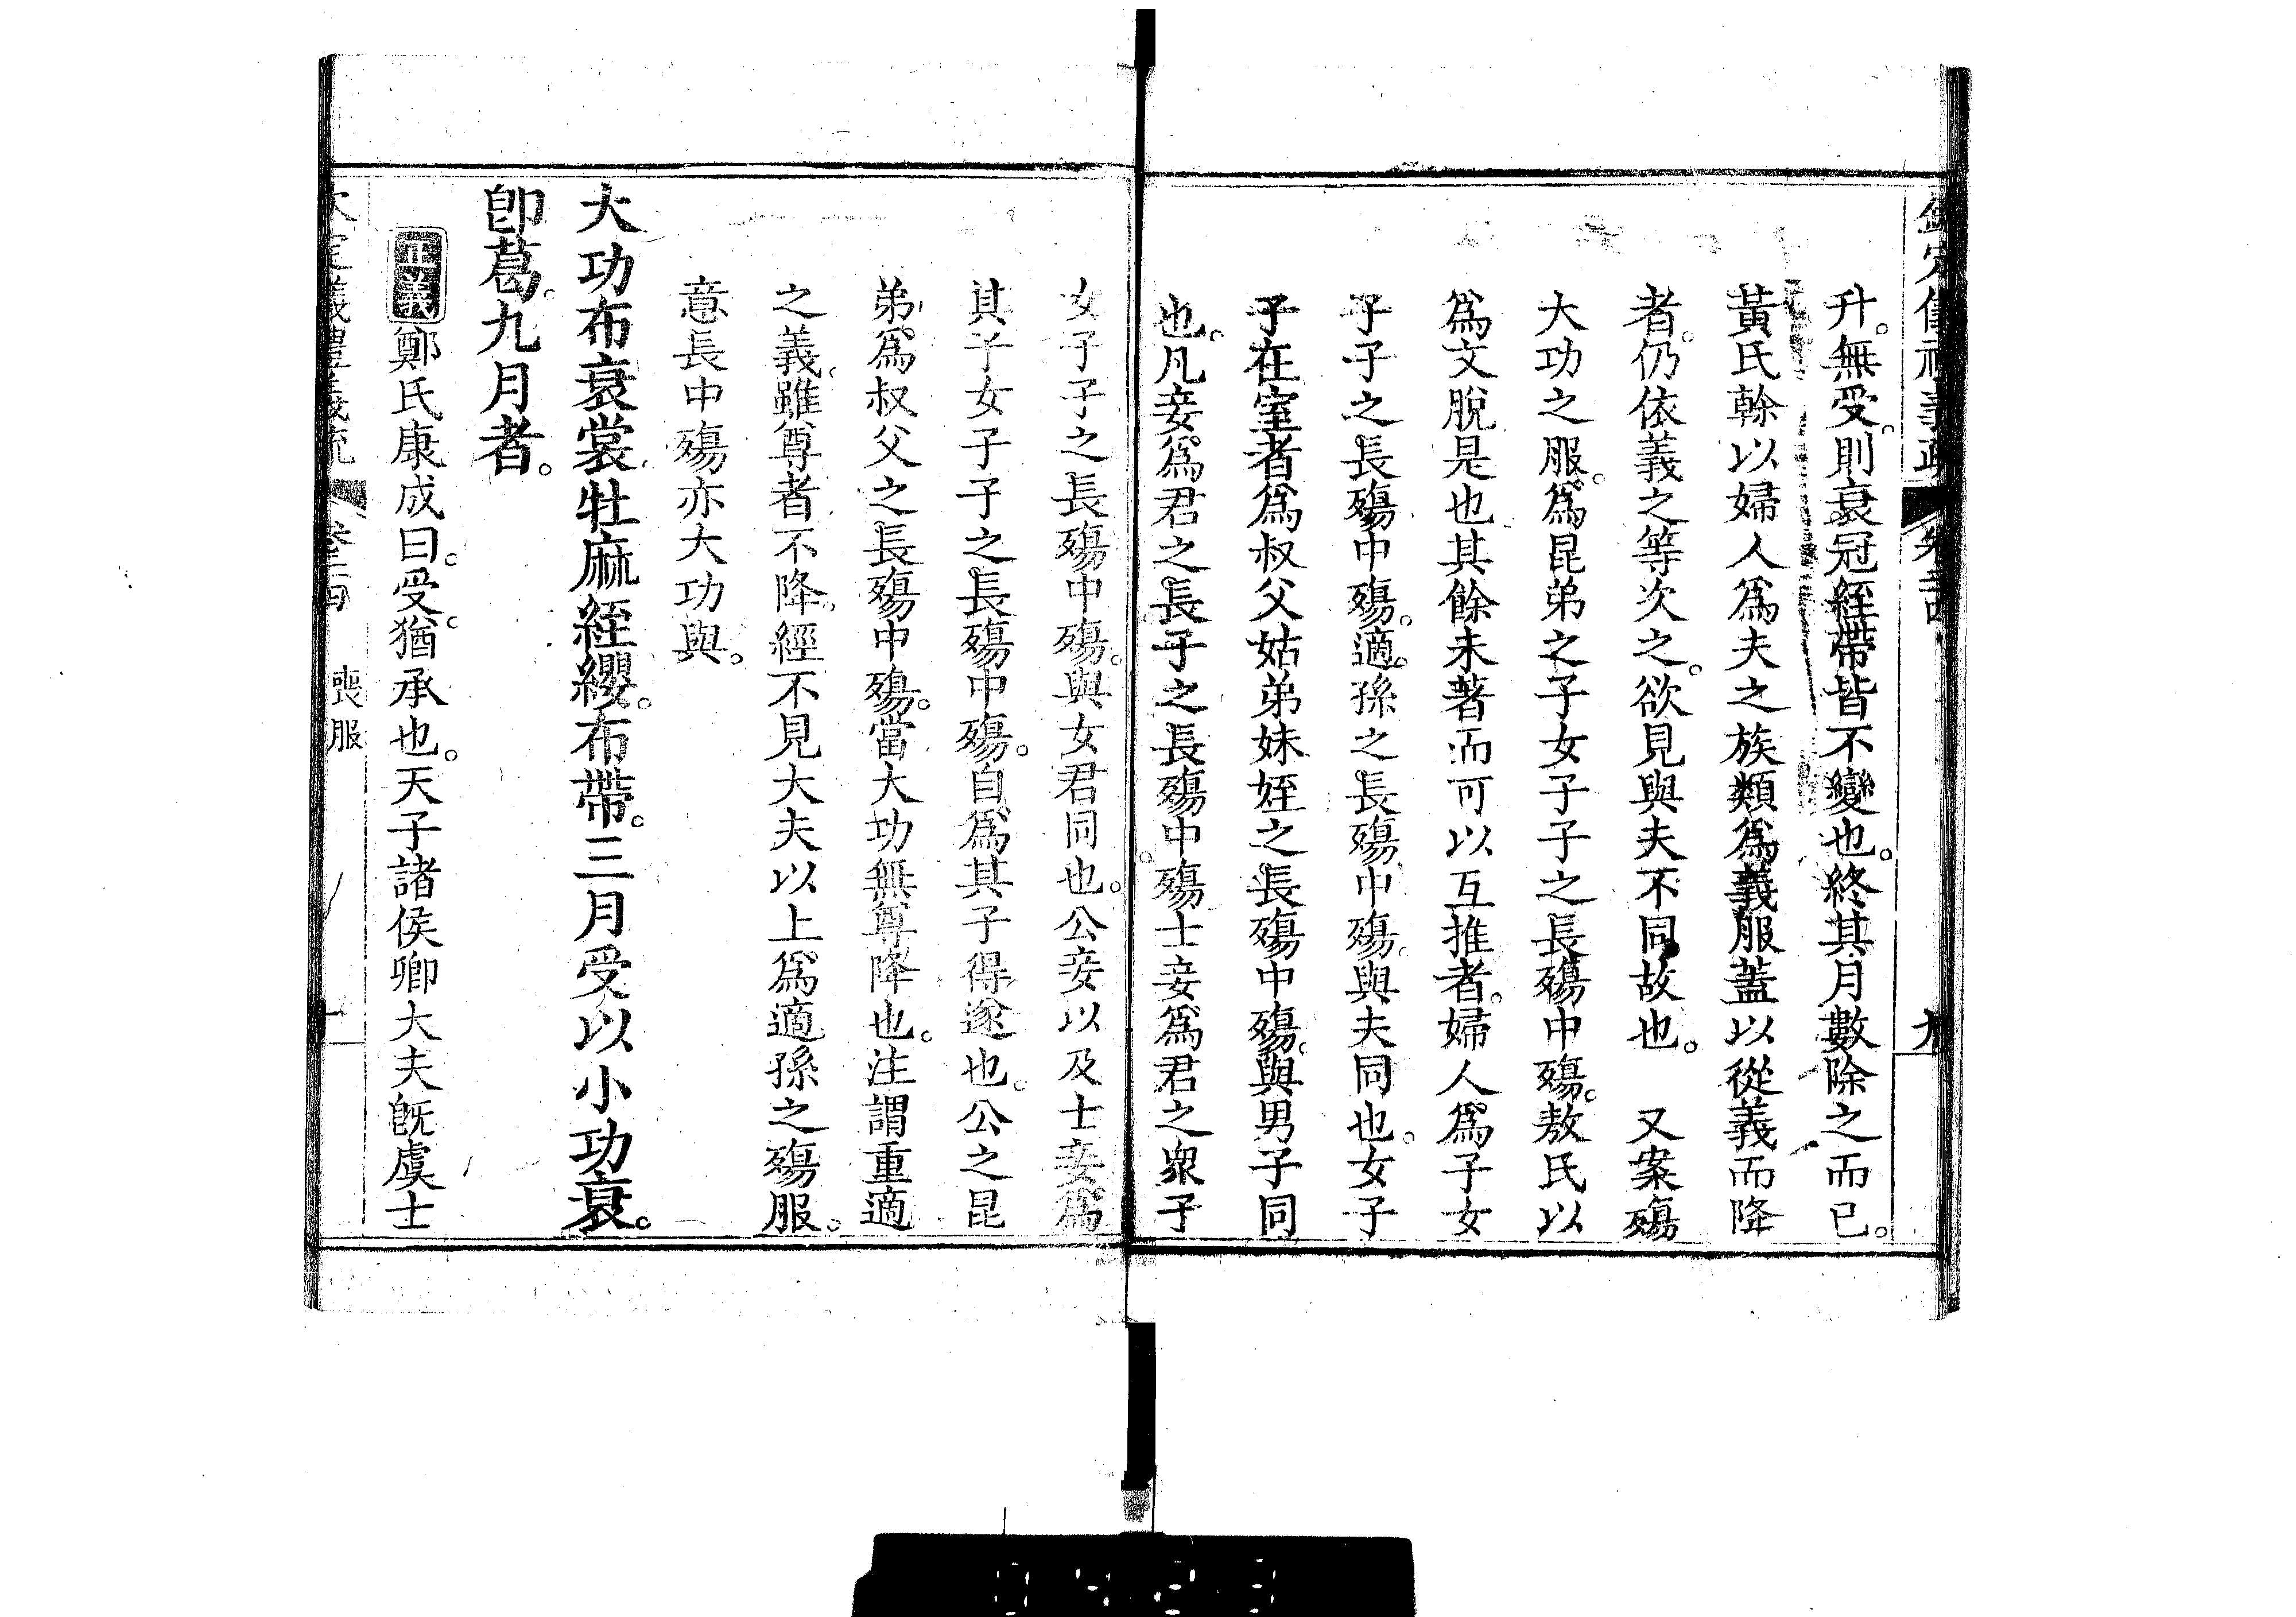 升。無受。則衰冠絰帶皆不變也。終其月數除之而已。
黃氏榦以婦人爲夫之族類爲義服蓋以從義而降
者。仍依義之等次之。欲見與夫不同故也。 又案殤
大功之服。爲昆弟之子女子子之長殤中殤。敖氏以
爲文脫是也其餘未著而可以互推者。婦人爲子女
子子之長殤中殤。適孫之長殤中殤。與夫同也。女子
子在室者爲叔父姑弟妹姪之長殤中殤。與男子同
也。凡妾爲君之長子之長殤中殤士妾爲君之衆子
女子子之長殤中殤。與女君同也。公妾以及士妾爲
其子女子子之長殤中殤。自爲其子得遂也。公之昆
弟爲叔父之長殤中殤。當大功無尊降也。注謂重適
之義。雖尊者不降。經不見大夫以上爲適孫之殤服。
意長中殤亦大功與。
大功布衰裳牡麻絰纓。布帶。三月受以小功衰。
卽葛。九月者。
正義鄭氏康成曰。受。猶承也。天子諸侯卿大夫旣虞士
喪服